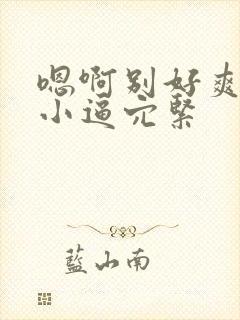 嗯啊别好爽
小逼穴紧
藍山南